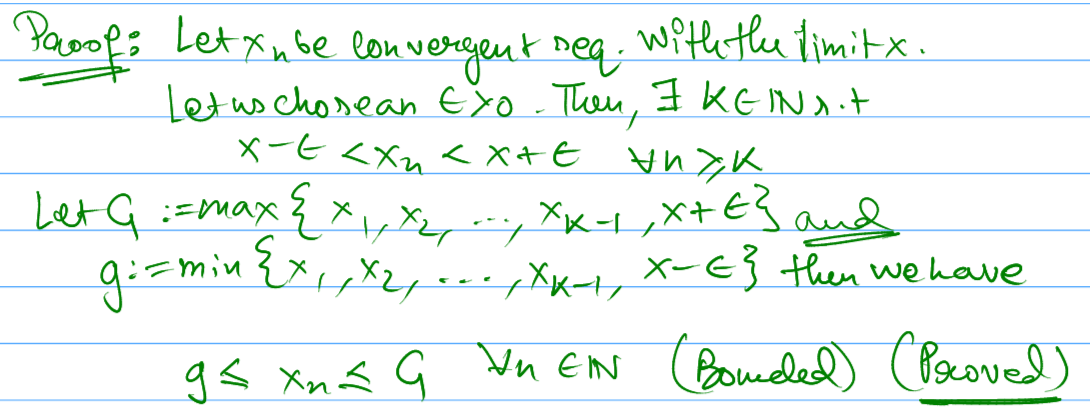 Proof: Let xₙ be convergent seq. with the limit x.
Let us chose an ϵ>0. Then, ∃ K∈ℕ s.t
x-ϵ < xₙ < x+ϵ ∀n ≥ K
Let G := max { x₁, x₂, ..., x_{K-1}, x+ϵ} and
g := min { x₁, x₂, ..., x_{K-1}, x-ϵ} then we have
g ≤ xₙ ≤ G ∀n ∈ℕ (Bounded) (Proved)